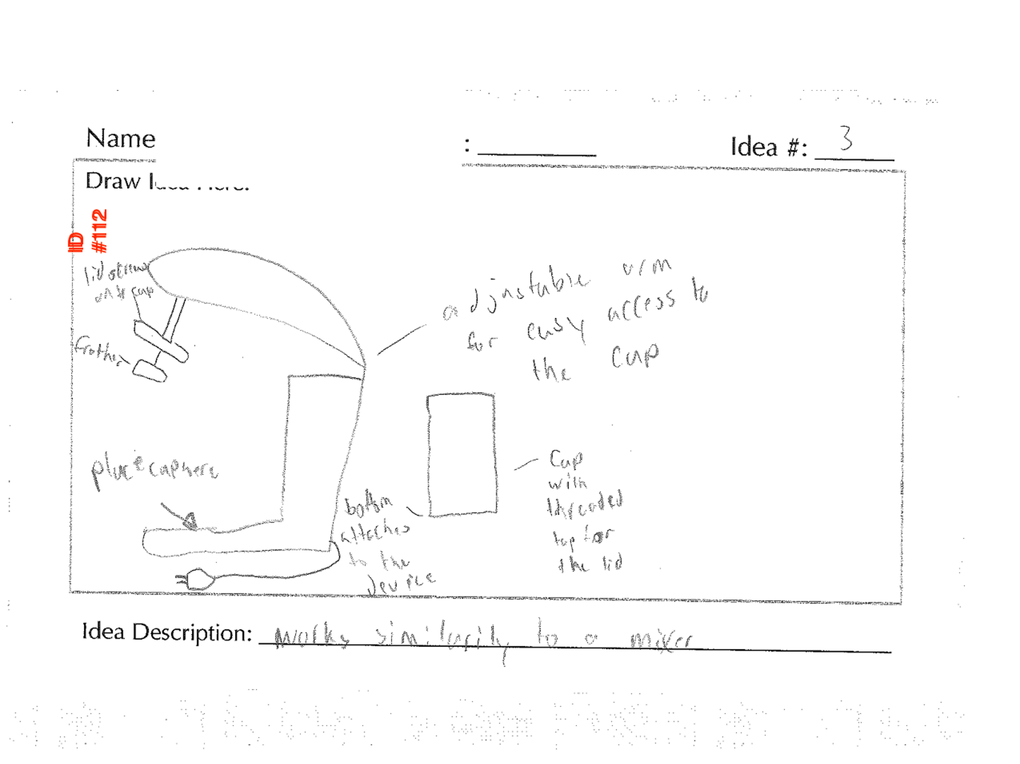 Name
: Idea #: 3
Draw Idea Here:
ID
#112
lid screws
onto cup
frother
adjustable arm
for easy access to
the cup
place cup here
bottom
attaches
to the
device
Cup
with
threaded
top for
the lid
Idea Description: works similarity to a mixer